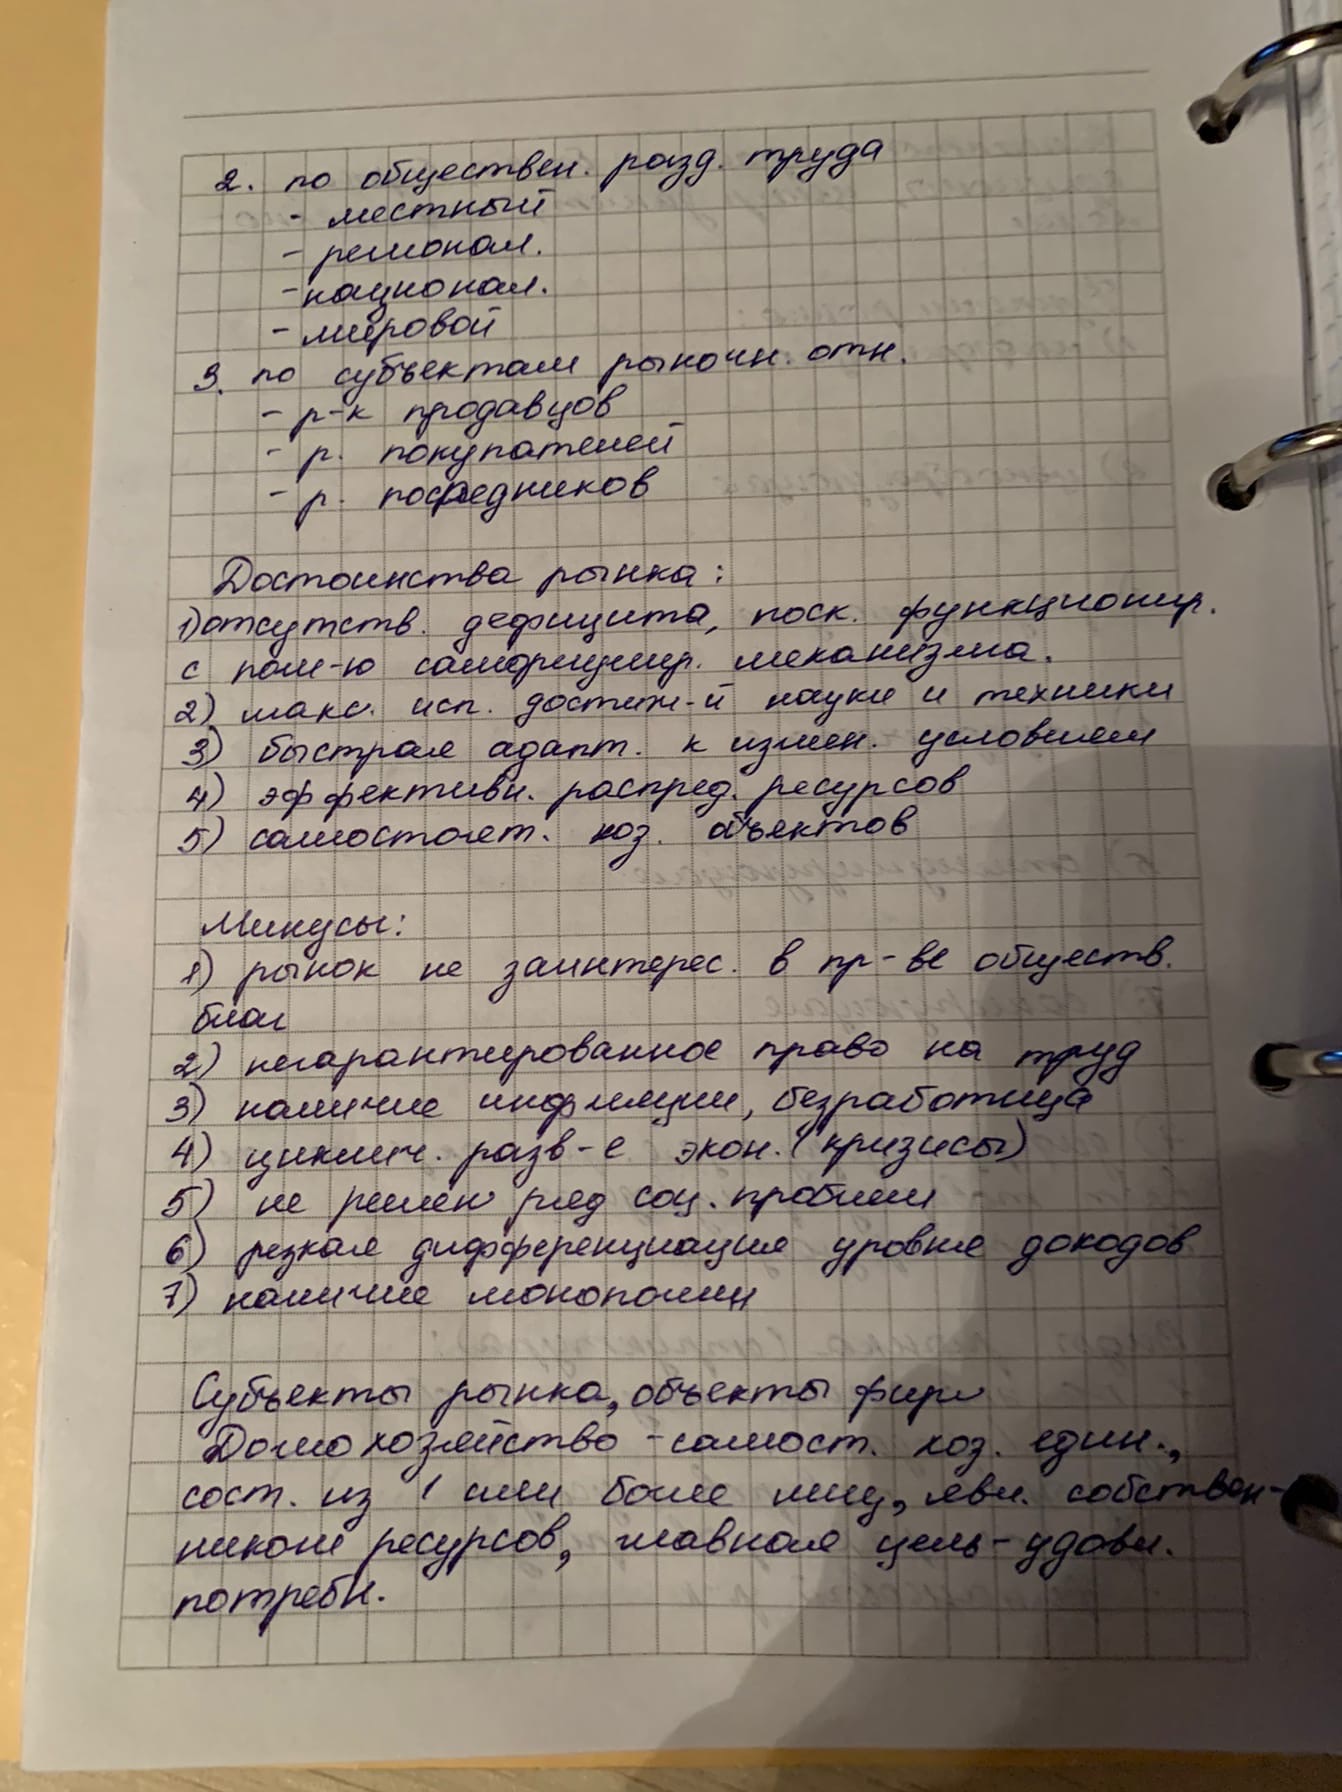 2. по обществен. разд. труда
- местный
- регионал.
- национал.
- мировой
3. по субъектам рыночн. отн.
- р-к продавцов
- р. покупателей
- р. посредников
Достоинства рынка:
1) отсутств. дефицита, поск. функционир.
с пом-ю саморегулир. механизма.
2) макс. исп. достиж-й науки и техники
3) быстрая адапт. к измен. условиям
4) эффективн. распред. ресурсов
5) самостоят. хоз. объектов
Минусы:
1) рынок не заинтерес. в пр-ве обществ.
благ
2) негарантированное право на труд
3) наличие инфляции, безработица
4) циклич. разв-е экон. (кризисы)
5) не решен ряд соц. проблем
6) резкая дифференциация уровня доходов
7) наличие монополии
Субъекты рынка, объекты фирм
Домохозяйство - самост. хоз. един.,
сост. из 1 или более лиц, явл. собствен-
ником ресурсов, главная цель - удовл.
потребн.